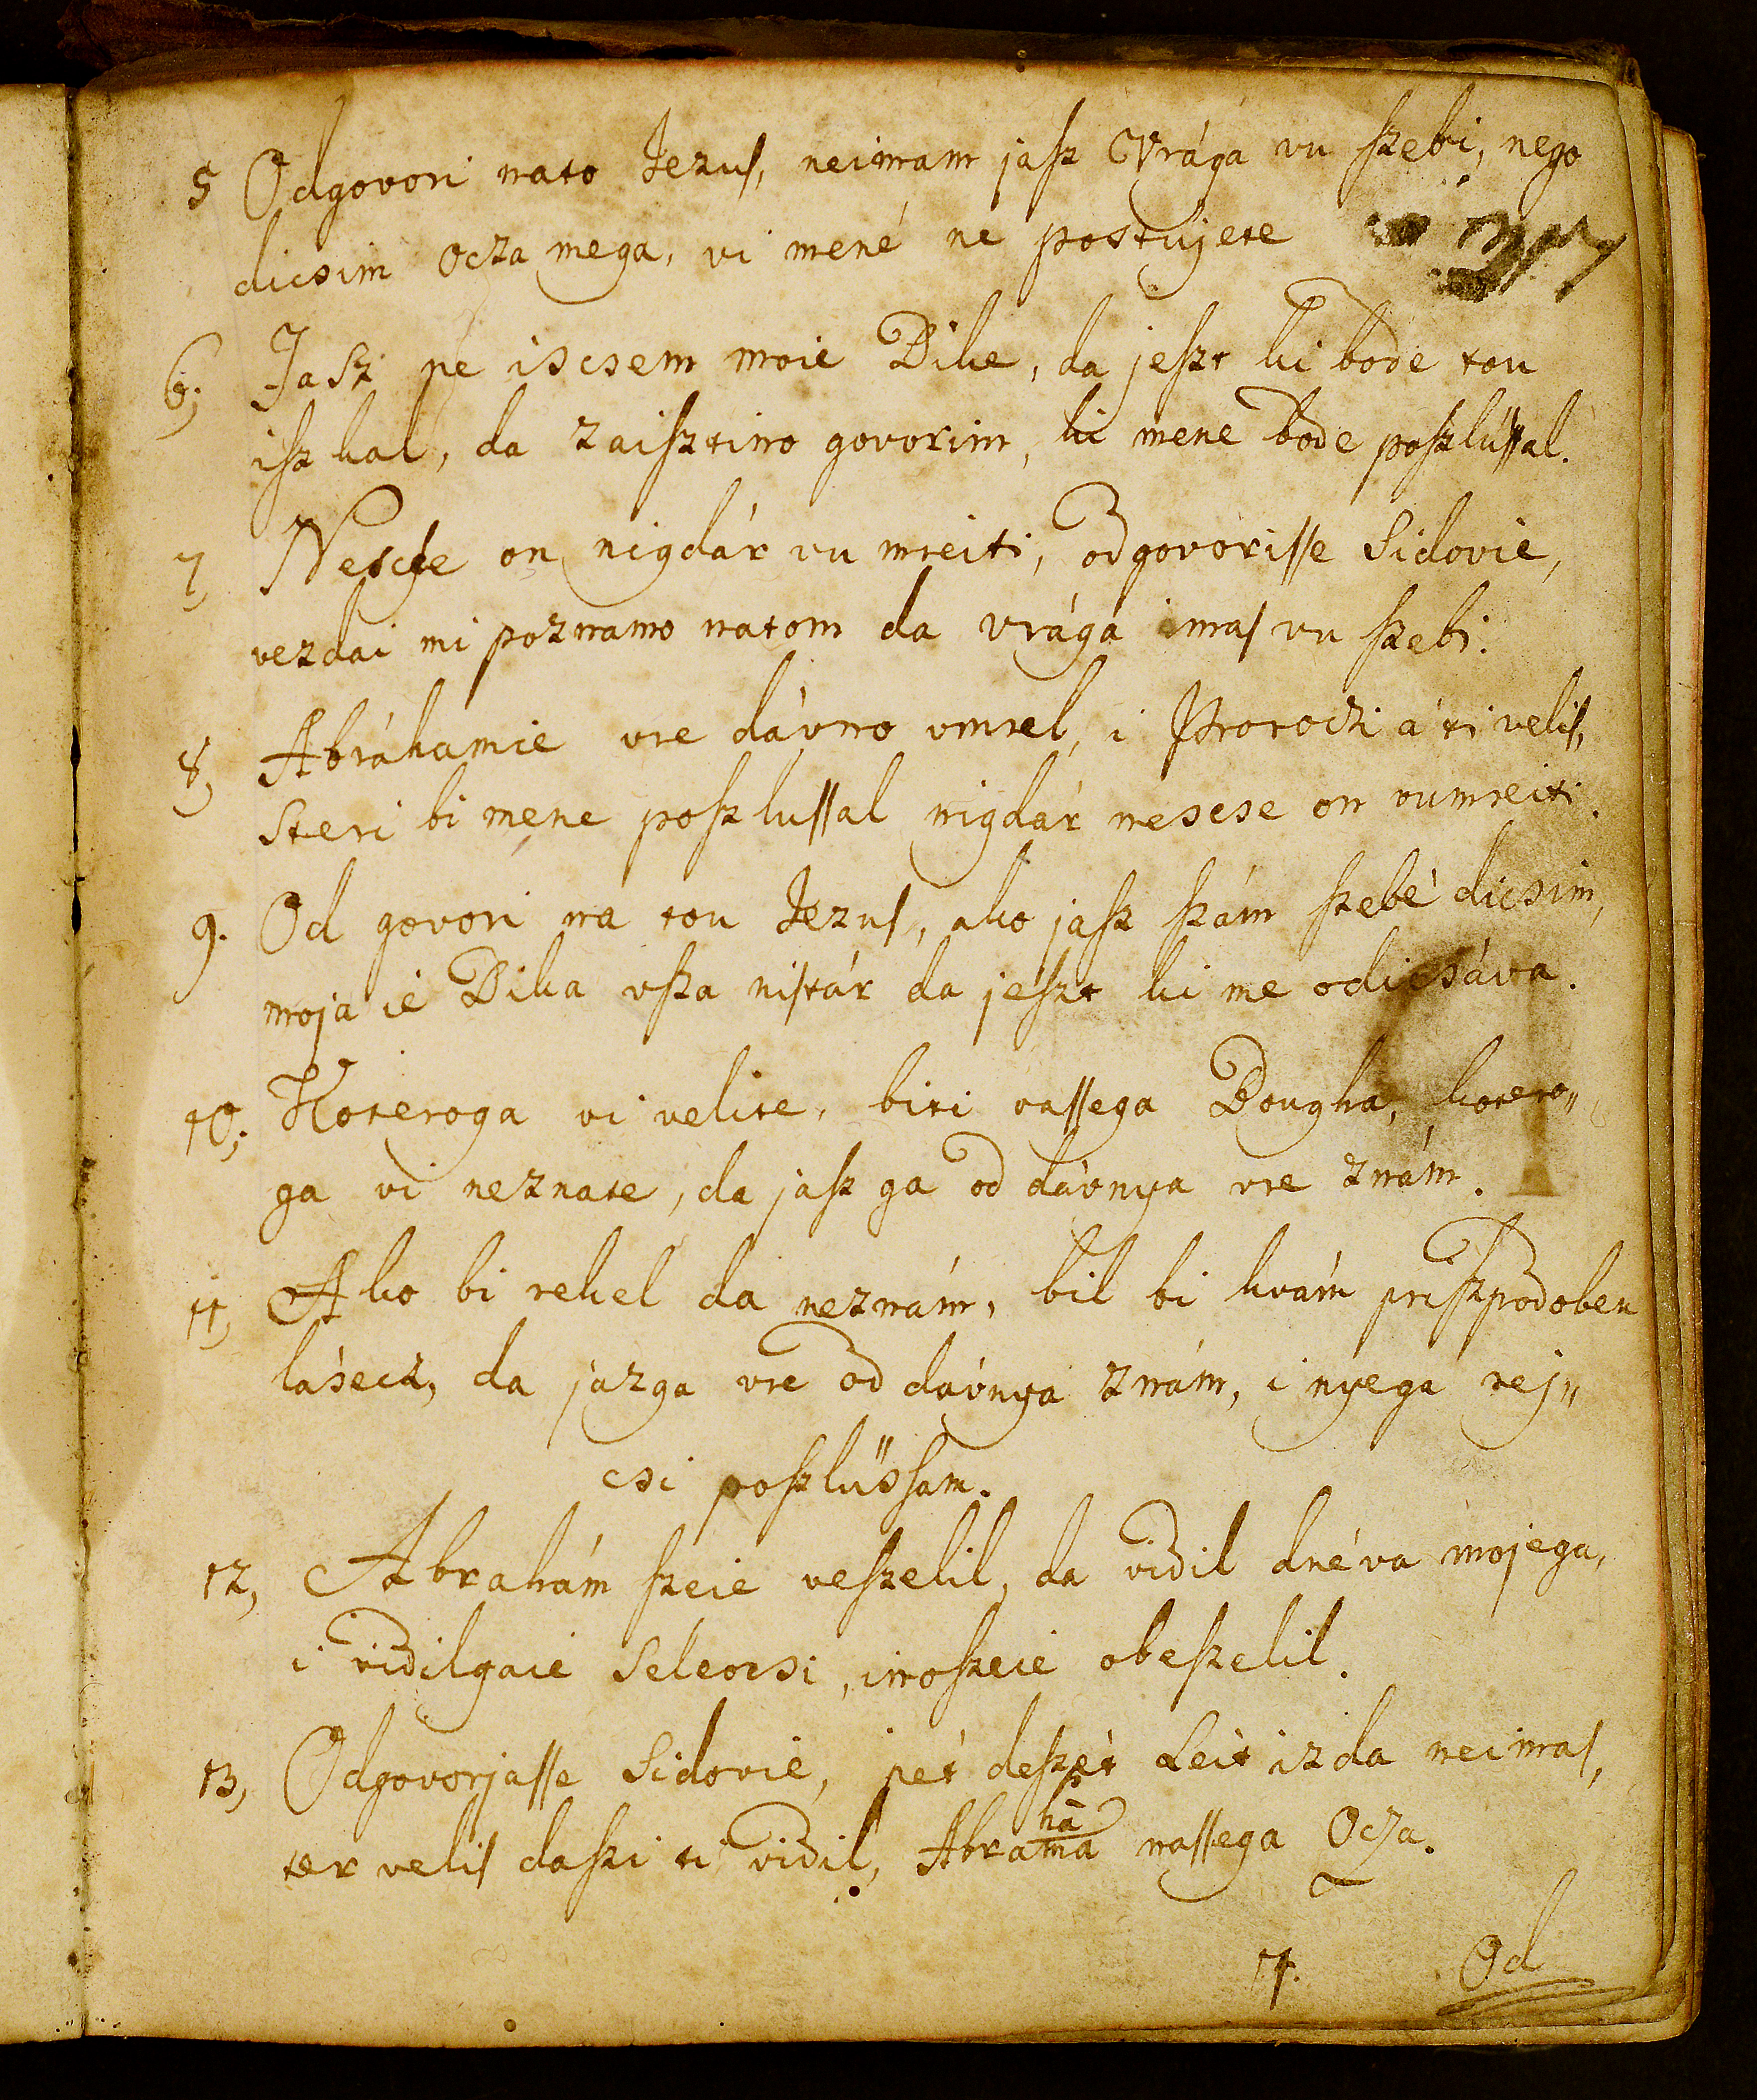 5 Odgovori nato Jezuſ, neimam jaſz Vrága vu ſzebi, nego
dicsim Ocza mega, vi mené ne postujete
6; Jaſz ne iscsem moie Dike, da jeſzt ki bode tou
iſzkal, da zaiſztino govorim, ki mene bode poſzlúſſal.
7, Nescse on nigdár vu mreiti, odgovoriſſe Sidovie,
vezdai mi poznamo natom da vrága imaſ vu ſzebi.
8, Abráhamie vre dávno vmrel, i Proroczi á ti veliſ,
Steri bi mene poſzluſſal nigdár nescse on vumreiti.
9. Od govori na tou Jezuſ, ako jaſz ſzám ſzebé dicsim,
moja ie Dika vſza niſtár da jeſzt ki me odicsáva.
10; Koteroga vi velite, biti vaſſega Bougha, kotero„
ga vi neznate, da jaſz ga od dávnya vre znám.
11, Ako bi rekel da neznám, bil bi kvám priſzpodoben
lásecz, da jazga vre od dávnya znám, i nyega rej„
csi poſzlüsſam.
12, Abrahám ſzeie veſzelil, da vidil dnéva mojega,
i vidilgaie Seleocsi, inoſzeie obeſzelil.
13, Odgovorjaſſe Sidovie, pét deſzét Leit izda neimaſ,
ter veliſ daſzi ti vidil, Abrahama naſſega Ocza.
14. Od